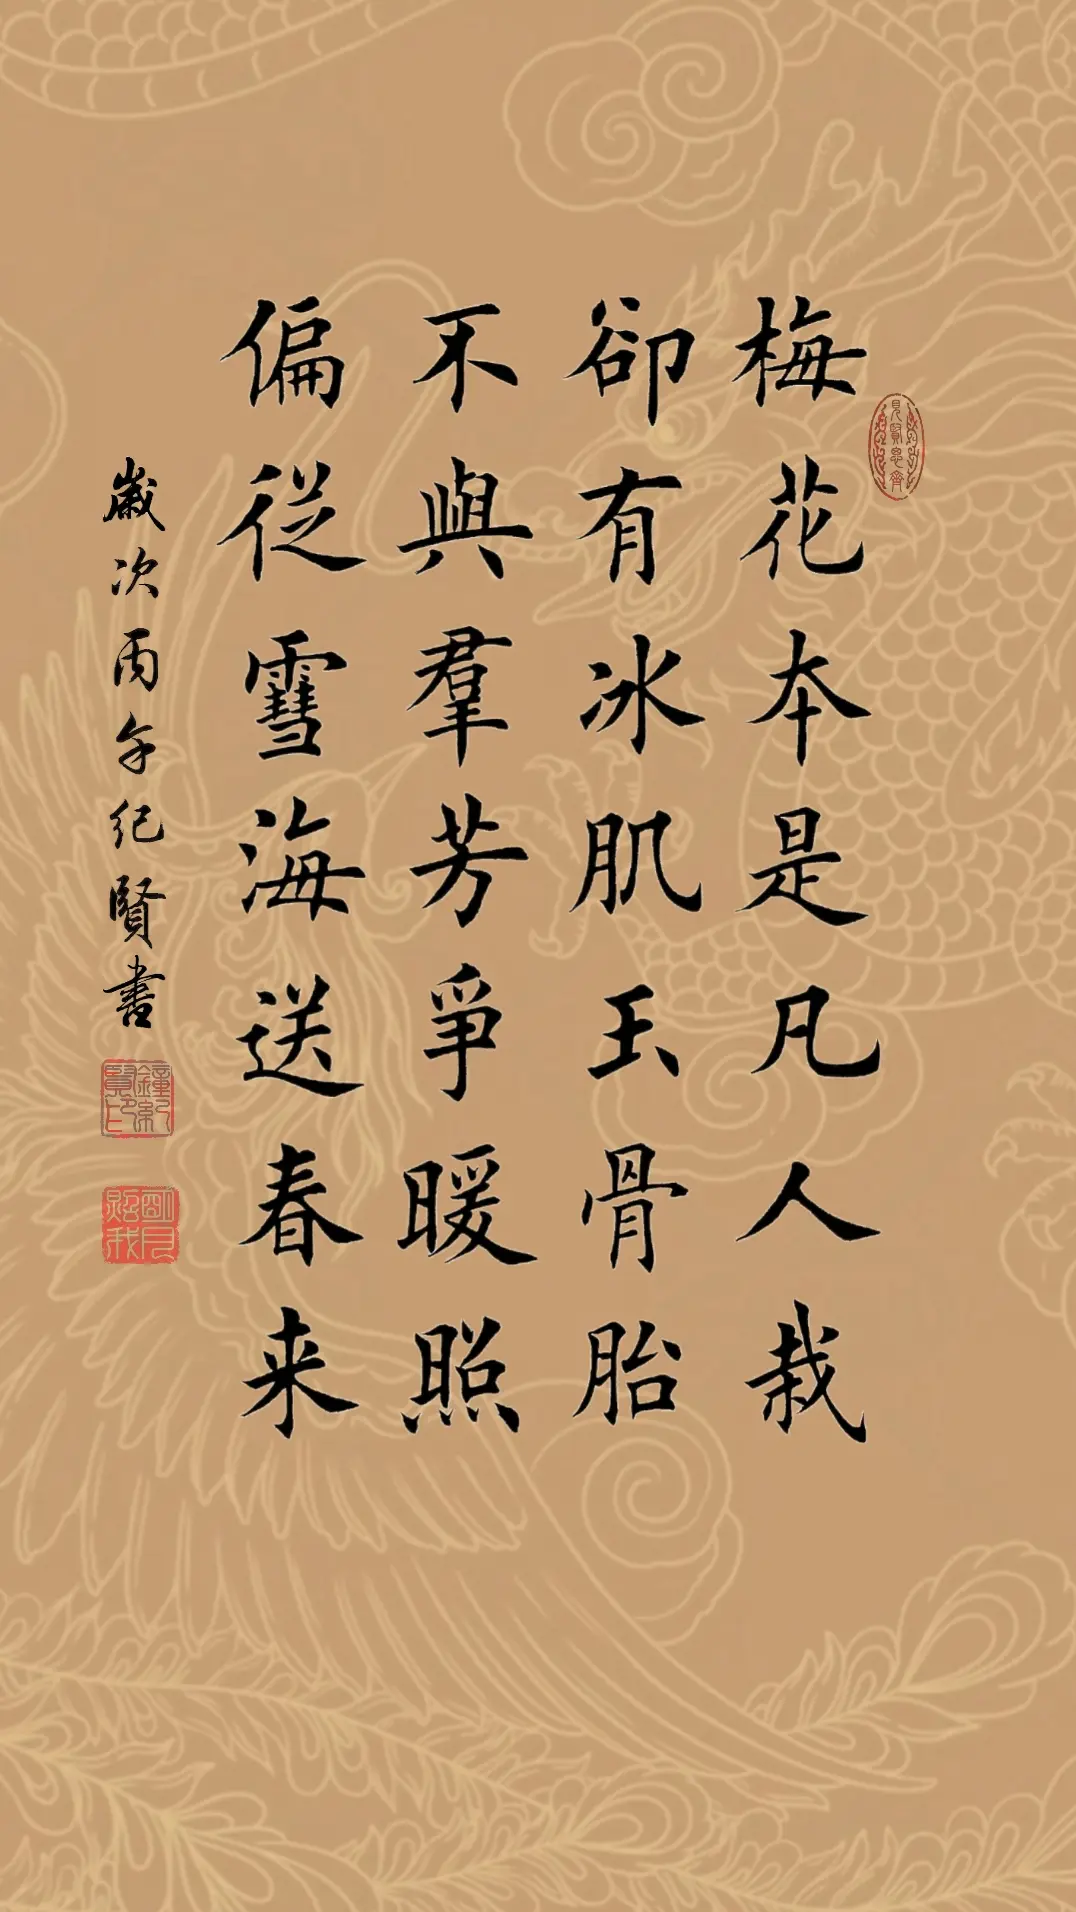 梅花本是凡人栽
卻有冰肌玉骨胎
不與羣芳爭暖照
偏從雪海送春来
歲次丙午纪賢書
見賢思齊
鐘紀賢印